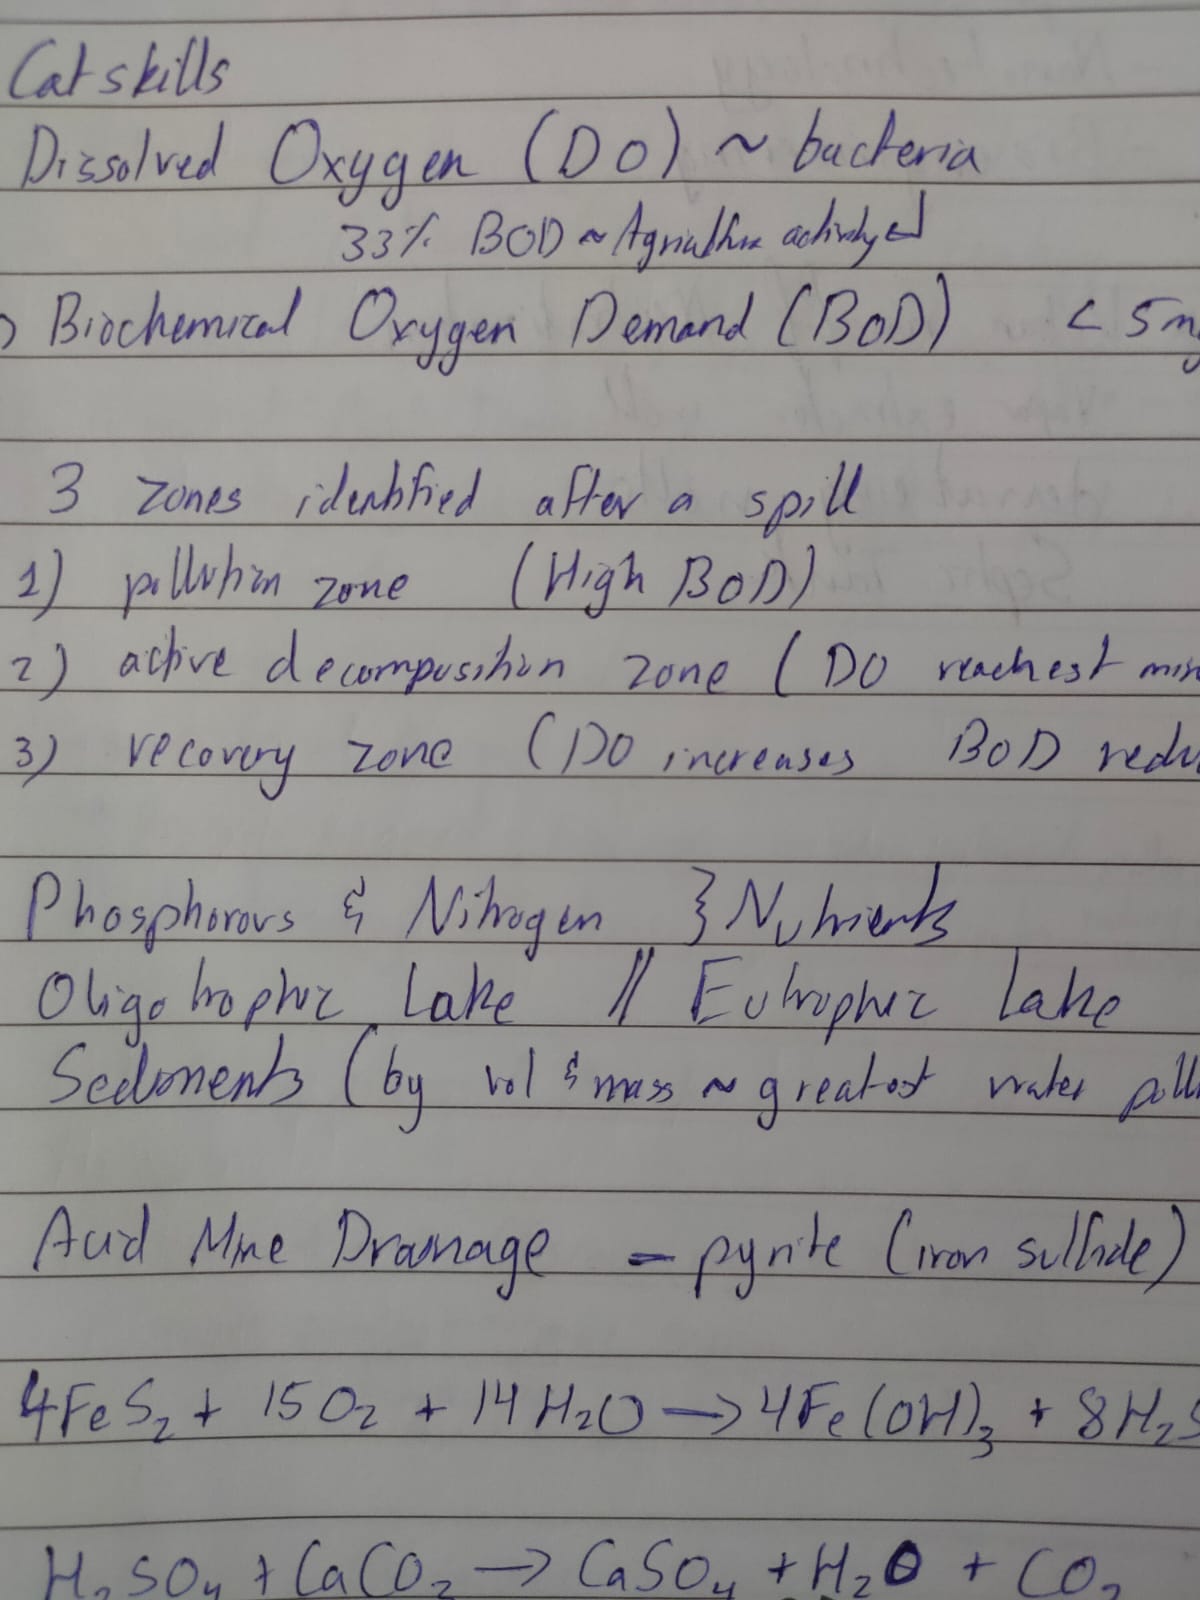 Catskills
Dissolved Oxygen (DO) ~ bacteria
33% BOD ~ Agriculture
Biochemical Oxygen Demand (BOD) < 5 mg
3 zones identified after a spill
1) pollution zone (High BOD)
2) active decomposition zone (DO reachest min
3) recovery zone (DO increases BOD redu
Phosphorous & Nitrogen } Nutrients
Oligotrophic Lake // Eutrophic Lake
Sediments (by vol & mass ~ greatest water poll
Acid Mine Drainage - pyrite (iron sulfide)
4FeS₂ + 15O₂ + 14H₂O → 4Fe(OH)₃ + 8H₂S
H₂SO₄ + CaCO₃ → CaSO₄ + H₂O + CO₂